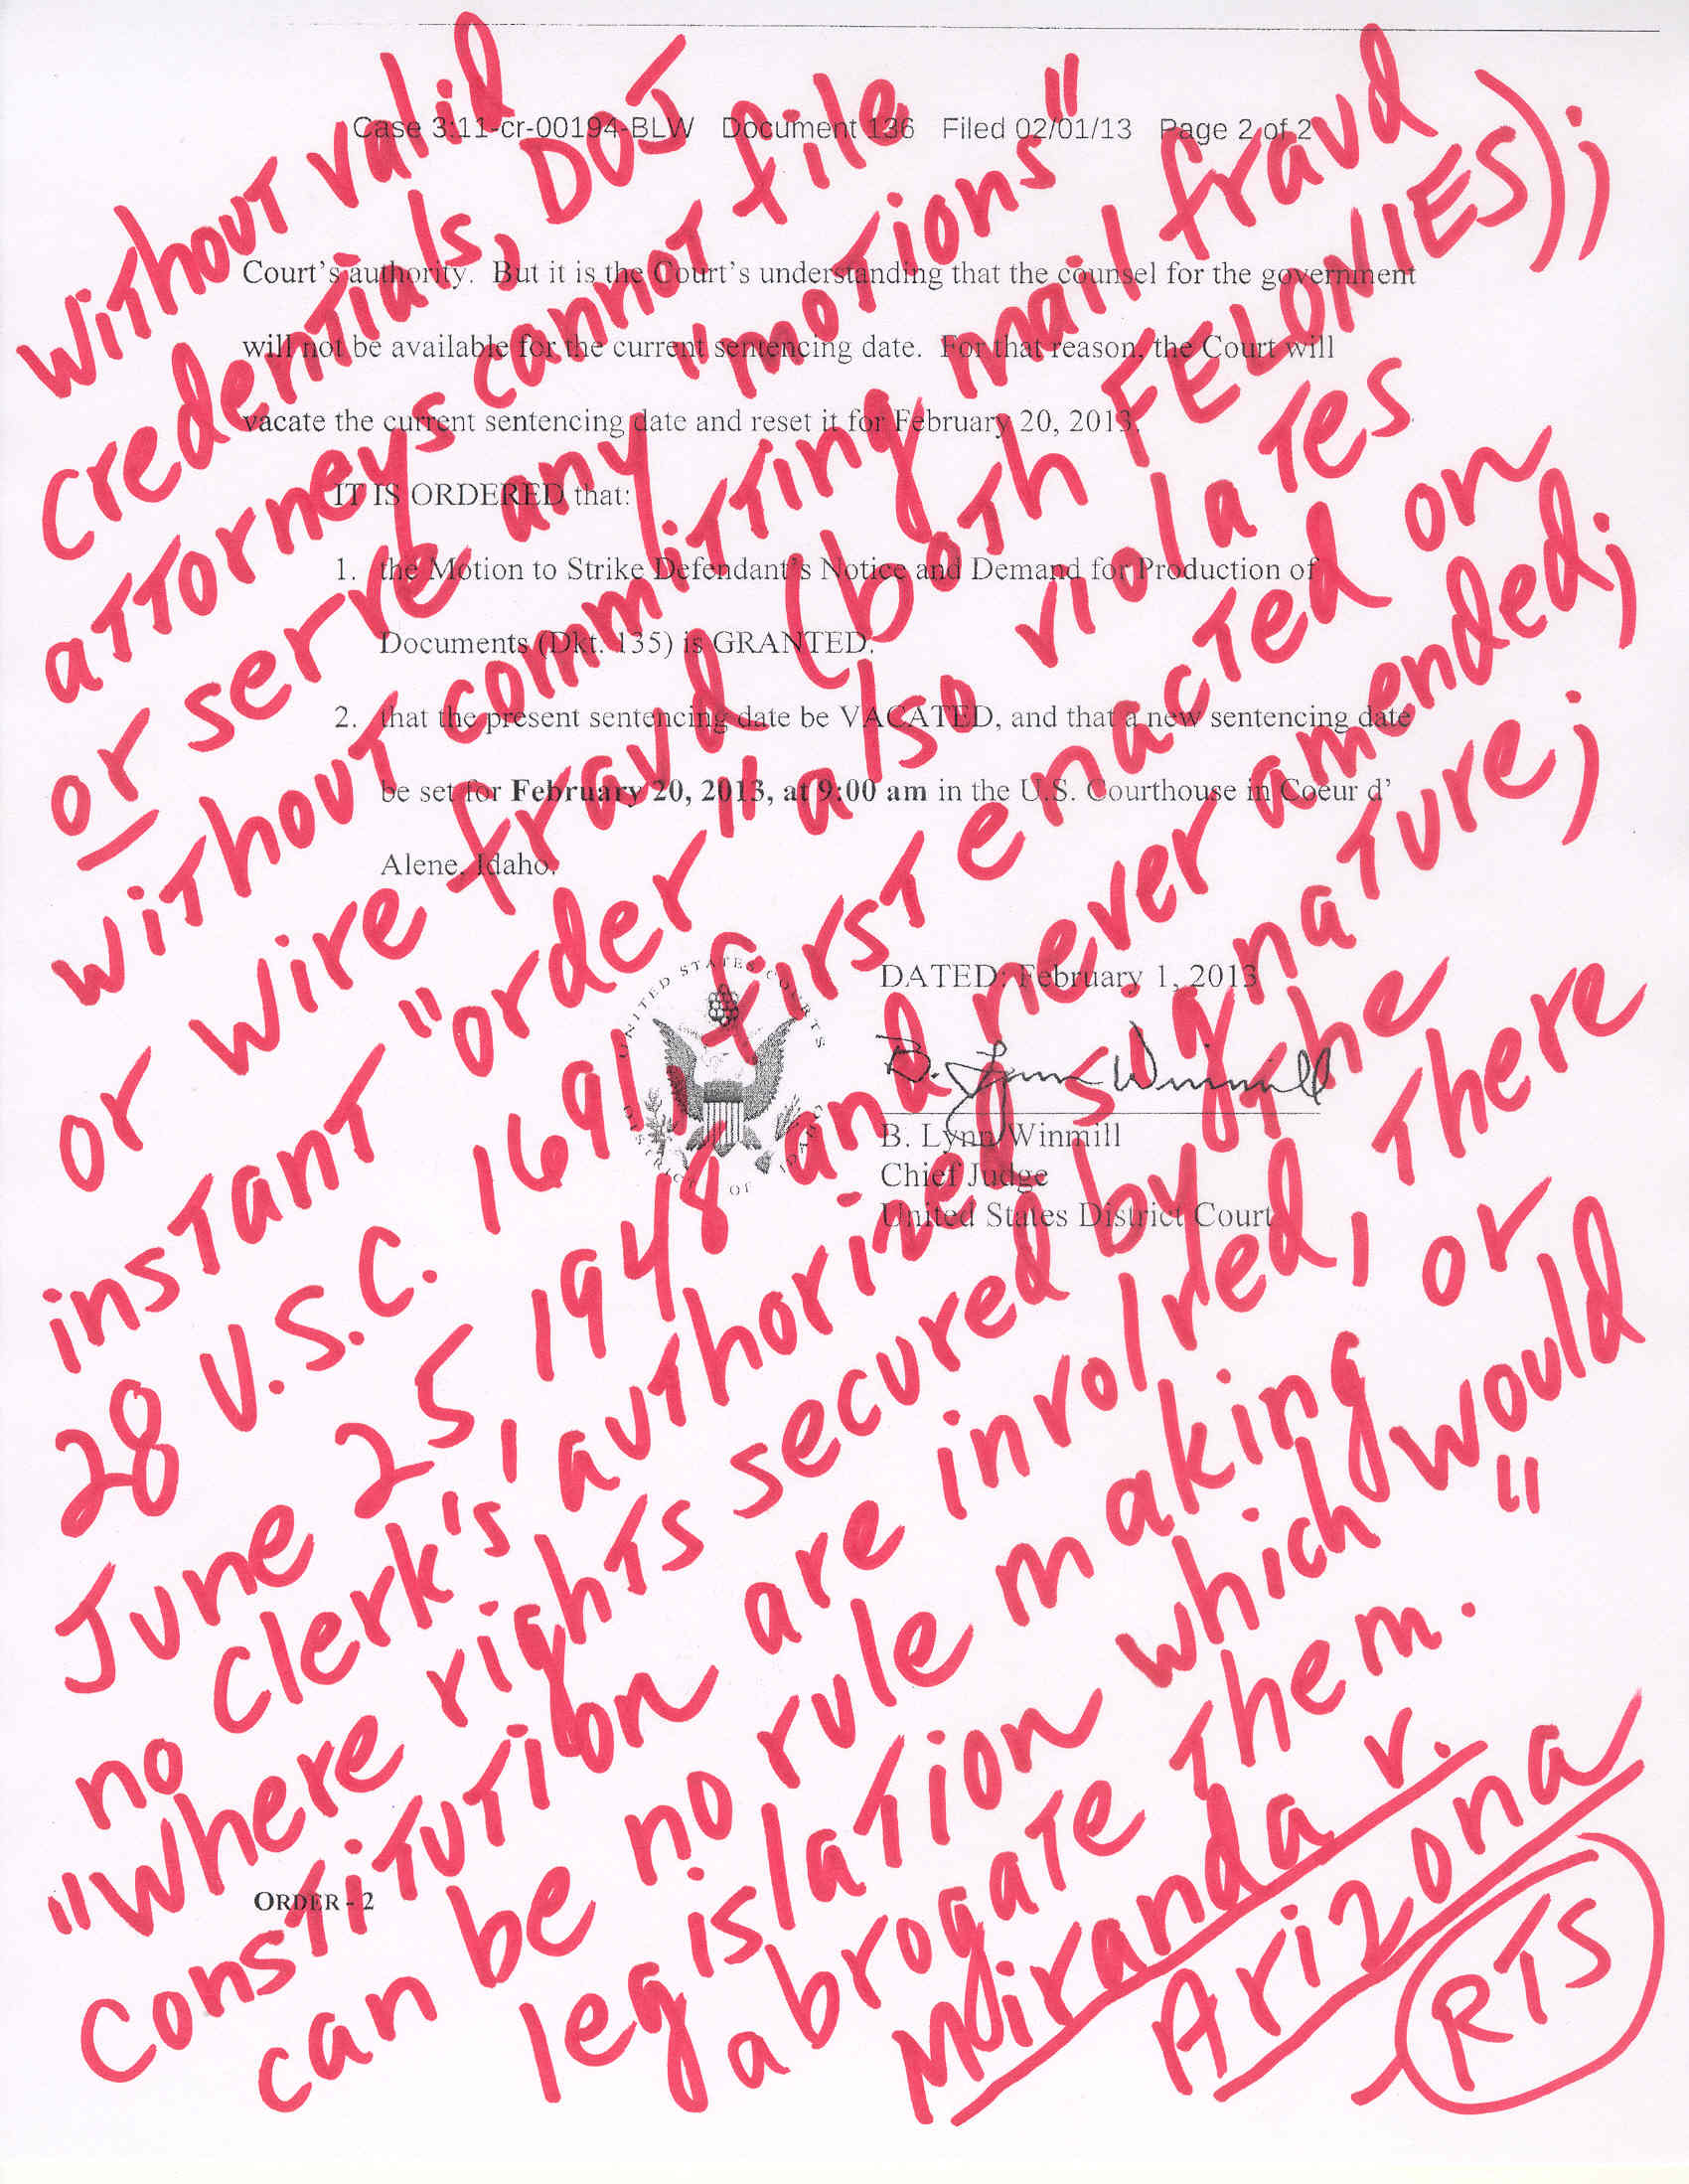 Case 3:11-cr-00194-BLW Document 136 Filed 02/01/13 Page 2 of 2
Court's authority. But it is the Court's understanding that the counsel for the government
will not be available for the current sentencing date. For that reason, the Court will
vacate the current sentencing date and reset it for February 20, 2013.
IT IS ORDERED that:
1. the Motion to Strike Defendant's Notice and Demand for Production of
Documents (Dkt. 135) is GRANTED.
2. that the present sentencing date be VACATED, and that a new sentencing date
be set for February 20, 2013, at 9:00 am in the U.S. Courthouse in Coeur d'
Alene, Idaho.
UNITED STATES COURTS
DISTRICT OF IDAHO
DATED: February 1, 2013
B. Lynn Winmill
B. Lynn Winmill
Chief Judge
United States District Court
ORDER - 2
without valid
credentials, DOJ
attorneys cannot file
or serve any "motions"
without committing mail fraud
or wire fraud (both FELONIES);
instant "order" also violates
28 U.S.C. 1691, first enacted on
June 25, 1948 and never amended;
no Clerk's authorized signature;
"Where rights secured by the
Constitution are involved, there
can be no rule making or
legislation which would
abrogate them."
Miranda v.
Arizona
RTS